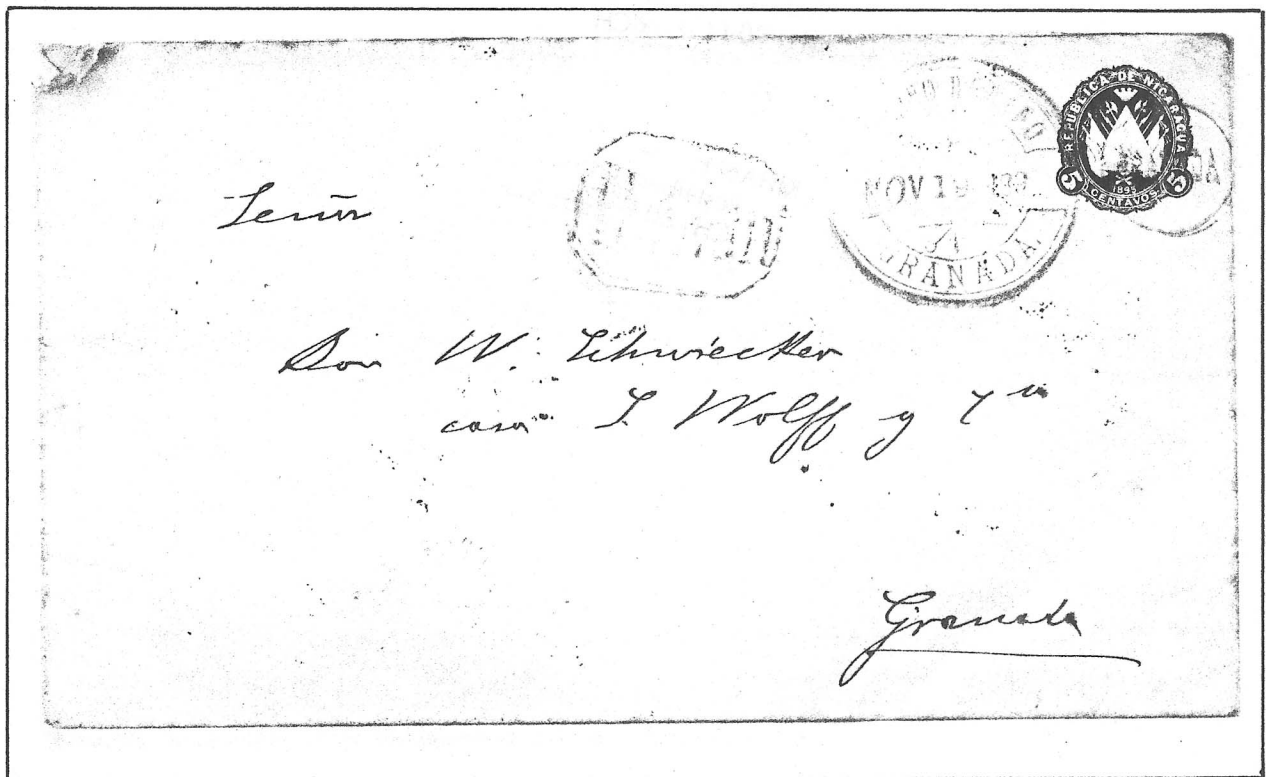 REPUBLICA DE NICARAGUA
5 1895 5
CENTAVOS
NOV 19
GRANADA
Señor
Don W. Schwiecker
casa J. Wolff y Cia
Granada